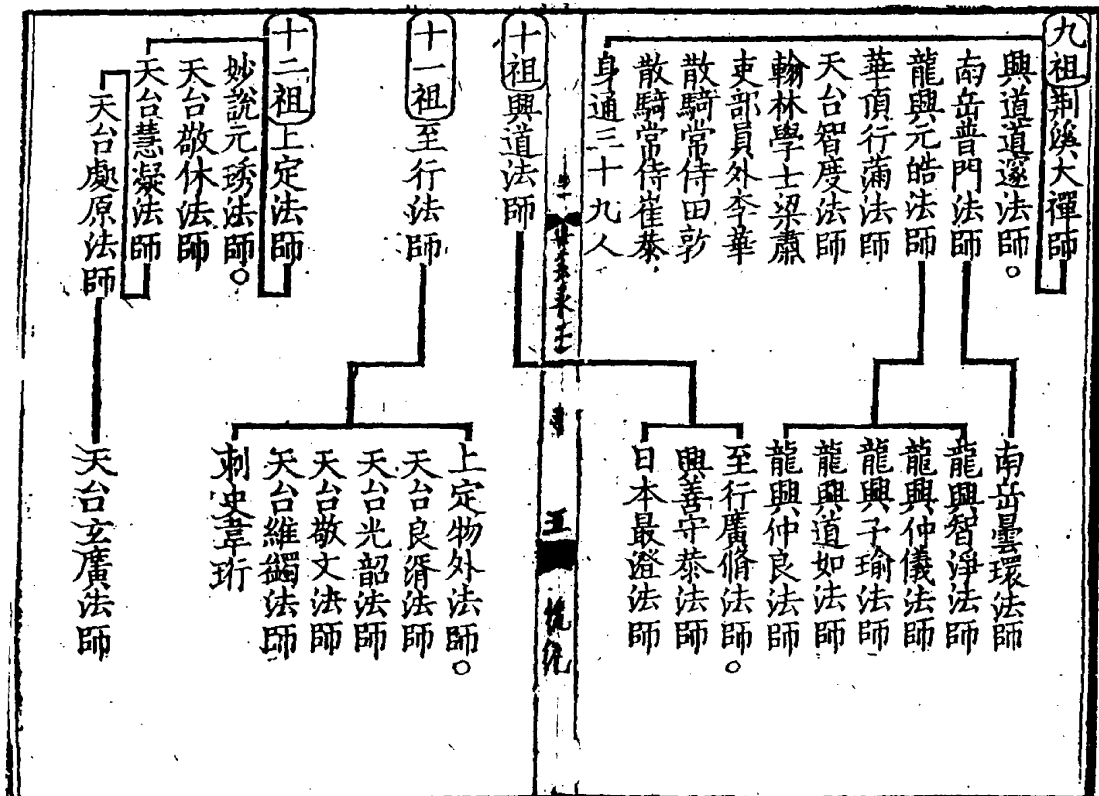 九祖荆溪大禪師
興道道邃法師。
南岳普門法師
龍興元皓法師
華頂行滿法師
天台智度法師
翰林學士梁肅
吏部員外李華
散騎常侍田敦
散騎常侍崔恭
身通三十九人
南岳曇環法師
龍興智淨法師
龍興仲儀法師
龍興子瑜法師
龍興道如法師
龍興仲良法師
十祖興道法師
至行廣脩法師。
興善守恭法師
日本最澄法師
十一祖至行法師
上定物外法師。
天台良湑法師
天台光韶法師
天台敬文法師
天台維蠲法師
刺史韋珩
十二祖上定法師
妙說元琇法師。
天台敬休法師
天台慧凝法師
天台處原法師
天台玄廣法師